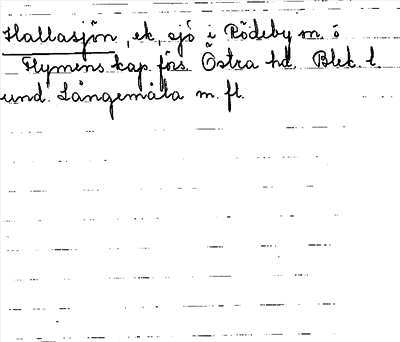 Hallasjön, ek, sjö i Rödeby sn. o
Flymens kap. förs. Östra hd. Blek. l.
und. Långemåla m. fl.